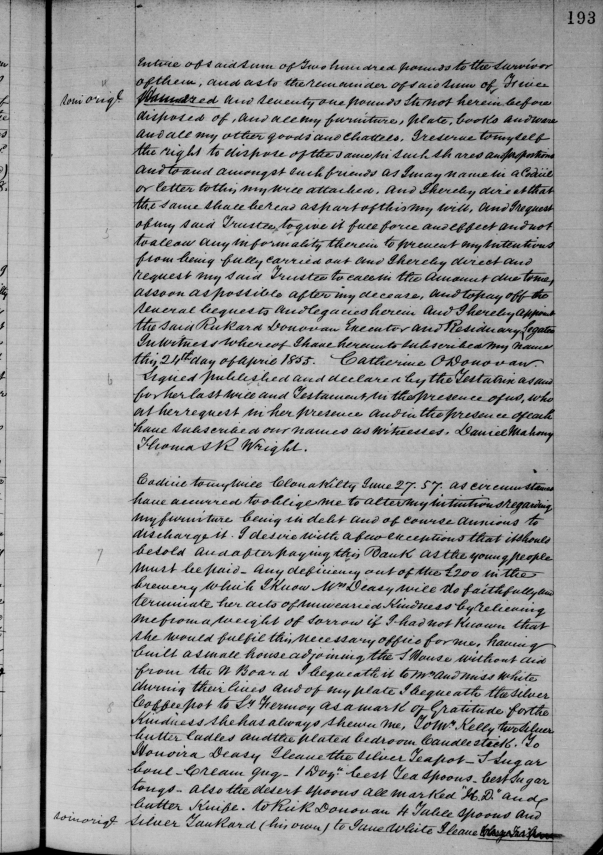 193
entire of said sum of Two hundred pounds to the survivor
of them, and as to the remainder of said sum of Twice
so in origl Hundred and seventy one pounds Str not herein before
disposed of, and all my furniture, plate, books and ware
and all my other goods and Chattels. I reserve to myself
the right to dispose of the same in such shares and proportions
and to and amongst such friends as I may name in a Codicil
or letter to this my will attached. And I hereby direct that
the same shall be read as part of this my will, And I request
of my said Trustee, to give it full force and effect and not
to allow any informality therein to prevent my intentions
from being fully carried out and I hereby direct and
request my said Trustee to call in the amount due to me,
as soon as possible after my decease, and to pay off the
several bequests and legacies herein And I hereby appoint
the said Rickard Donovan Executor and Residuary Legatee
In witness whereof I have hereunto subscribed my name
this 24th day of April 1855. Catherine O'Donovan.
Signed published and declared by the Testatrix as and
for her last will and Testament in the presence of us, who
at her request in her presence and in the presence of each
have subscribed our names as witnesses. Daniel Mahony
Thomas R Wright.
Codicil to my will Clonakilty June 27. 57. as circumstances
have occurred to oblige me to alter my intentions regarding
my furniture being in debt and of course anxious to
discharge it. I desire with a few exceptions that it should
be sold and after paying this Bank as the young people
must be paid - any deficiency out of the £200 in the
brewery which I know Mrs Deasy will do faithfully and
terminate her acts of unwearied Kindness by relieving
me from a weight of sorrow if I had not known that
she would fulfil this necessary office for me, having
built a small house adjoining the S House without aid
from the N Board I bequeath it to Mr and Miss White
during their lives and of my plate I bequeath the silver
Coffee pot to Fermoy as a mark of Gratitude for the
Kindness she has always shewn me, To Mrs Kelly two silver
butter ladles and the plated bedroom Candlestick. To
Honoria Deasy I leave the silver Teapot - S Sugar
bowl - Cream jug - 1 Dozn best Tea spoons - best Sugar
tongs - also the desert spoons all marked "H.D." and
butter Knife. to Rick Donovan 4 Table spoons and
so in origl silver Tankard (his own) to Jane White I leave